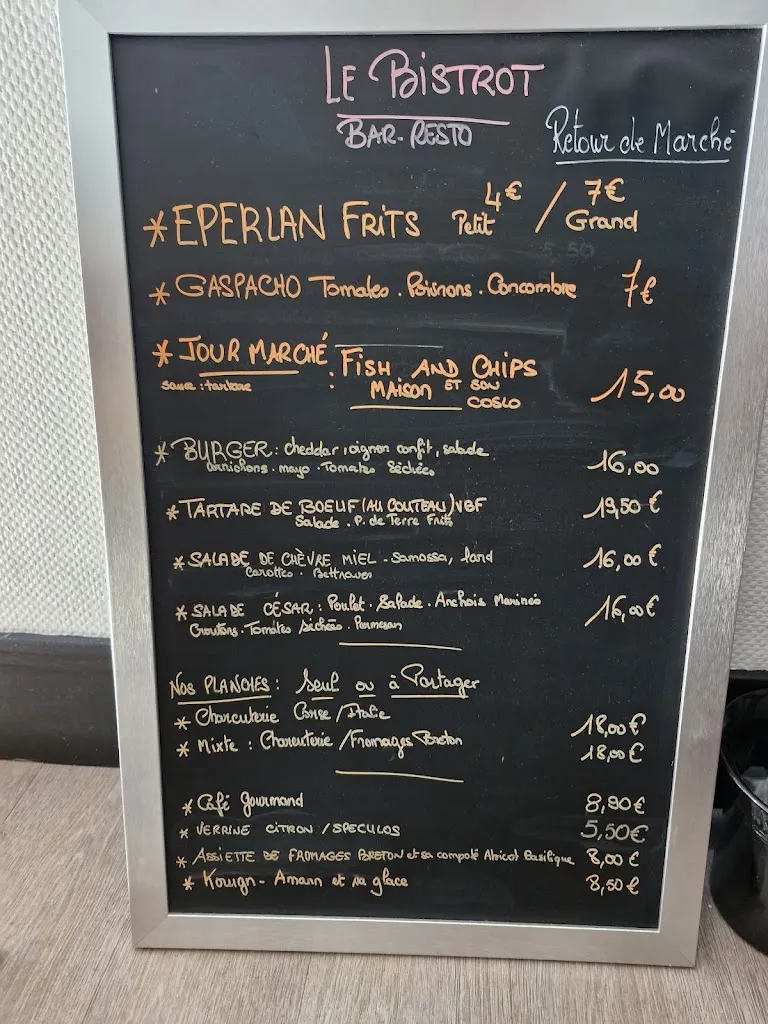 LE BISTROT
BAR-RESTO
Retour de Marché
* EPERLAN FRITS Petit 4€ / 7€ Grand
* GASPACHO Tomates . Poivrons . Concombre 7€
* JOUR MARCHÉ : FISH AND CHIPS
sauce : tartare : MAISON ET SON COSLO 15,00
* BURGER : cheddar, oignon confit, salade
cornichons . mayo . Tomates Séchées 16,00
* TARTARE DE BOEUF (AU COUTEAU) VBF 19,50 €
Salade . P. de Terre Frits
* SALADE DE CHÈVRE MIEL - Samossa, lard 16,00 €
Carottes . Bettraves
* SALADE CÉSAR : Poulet . Salade . Anchois Marinés 16,00 €
Croutons . Tomates séchées . Parmesan
NOS PLANCHES : Seul ou à Partager
* Charcuterie Corse / Italie 18,00 €
* Mixte : Charcuterie / Fromages Breton 18,00 €
* Café gourmand 8,90 €
* VERRINE CITRON / SPECULOS 5,50€
* ASSIETTE DE FROMAGES BRETON et sa compoté Abricot Basilique 8,00 €
* Kouign - Amann et sa glace 8,50 €